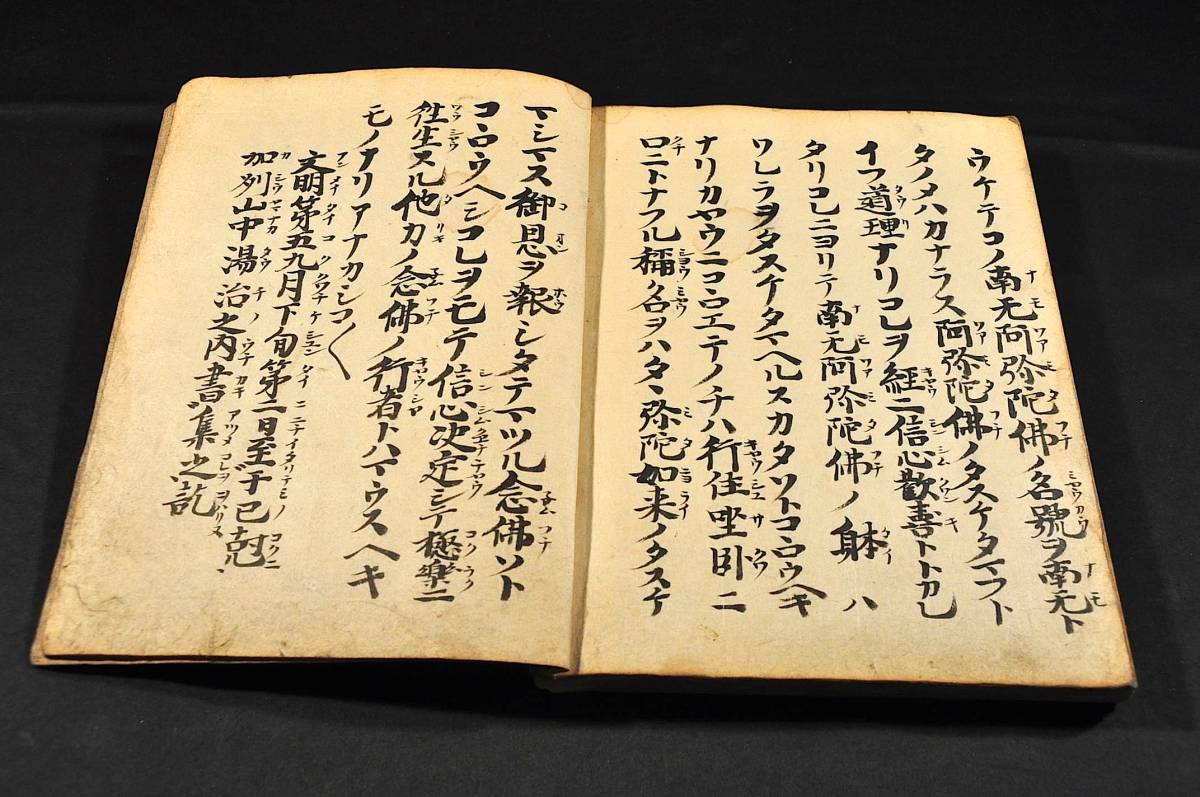 ウケテコノ南无阿弥陀佛ノ名號ヲ南无ト
タノメハカナラス阿弥陀佛ノタスケタマフト
イフ道理ナリコレヲ經ニ信心歡喜トトカレ
タリコレニヨリテ南无阿弥陀佛ノ躰ハ
ワレラヲタスケタマヘルスカタソトコヽロウヘキ
ナリカヤウニコヽロエテノチハ行住坐卧ニ
ロニトナフル稱名ヲハタヽ弥陀如来ノタスケ
マシマス御恩ヲ報シタテマツル念佛ソト
コヽロウヘシコレヲモテ信心决定シテ極樂ニ
往生スル他力ノ念佛ノ行者トハマウスヘキ
モノナリアナカシコ〱
文明第五九月下旬第二日至于巳剋
加州山中湯治之内書集之訖